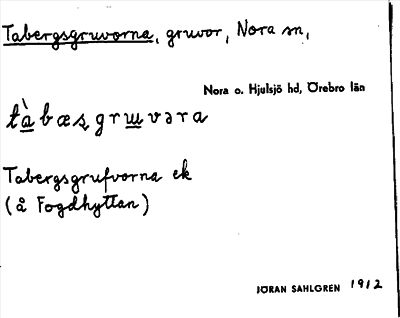 Tabergsgruvorna, gruvor, Nora sn,
Nora o. Hjulsjö hd, Örebro län
tàbæsgruvəra
Tabergsgrufvorna ek
(å Fogdhyttan)
JÖRAN SAHLGREN 1912